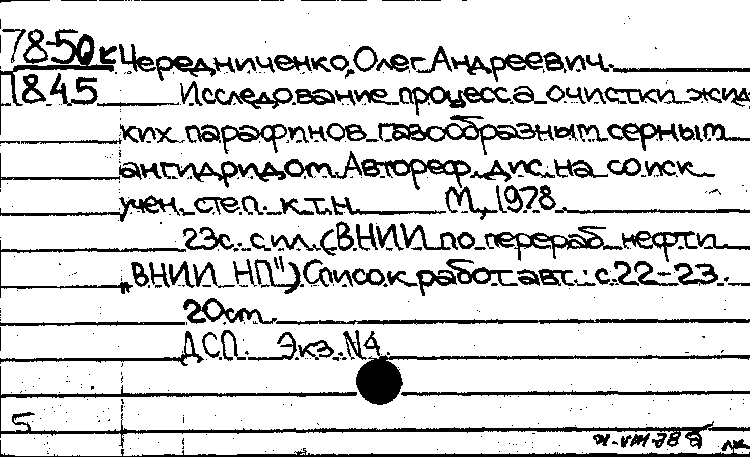 78-50к Чередниченко, Олег Андреевич.
1845 Исследование процесса очистки жид
ких парафинов газообразным серным
ангидридом. Автореф. дис. на соиск
учен. степ. к.т.н. М, 1978.
23с. с ил. (ВНИИ по перераб. нефти
„ВНИИ НП") Список работ авт.: с.22-23.
20см.
ДСП. Экз. N4.
5